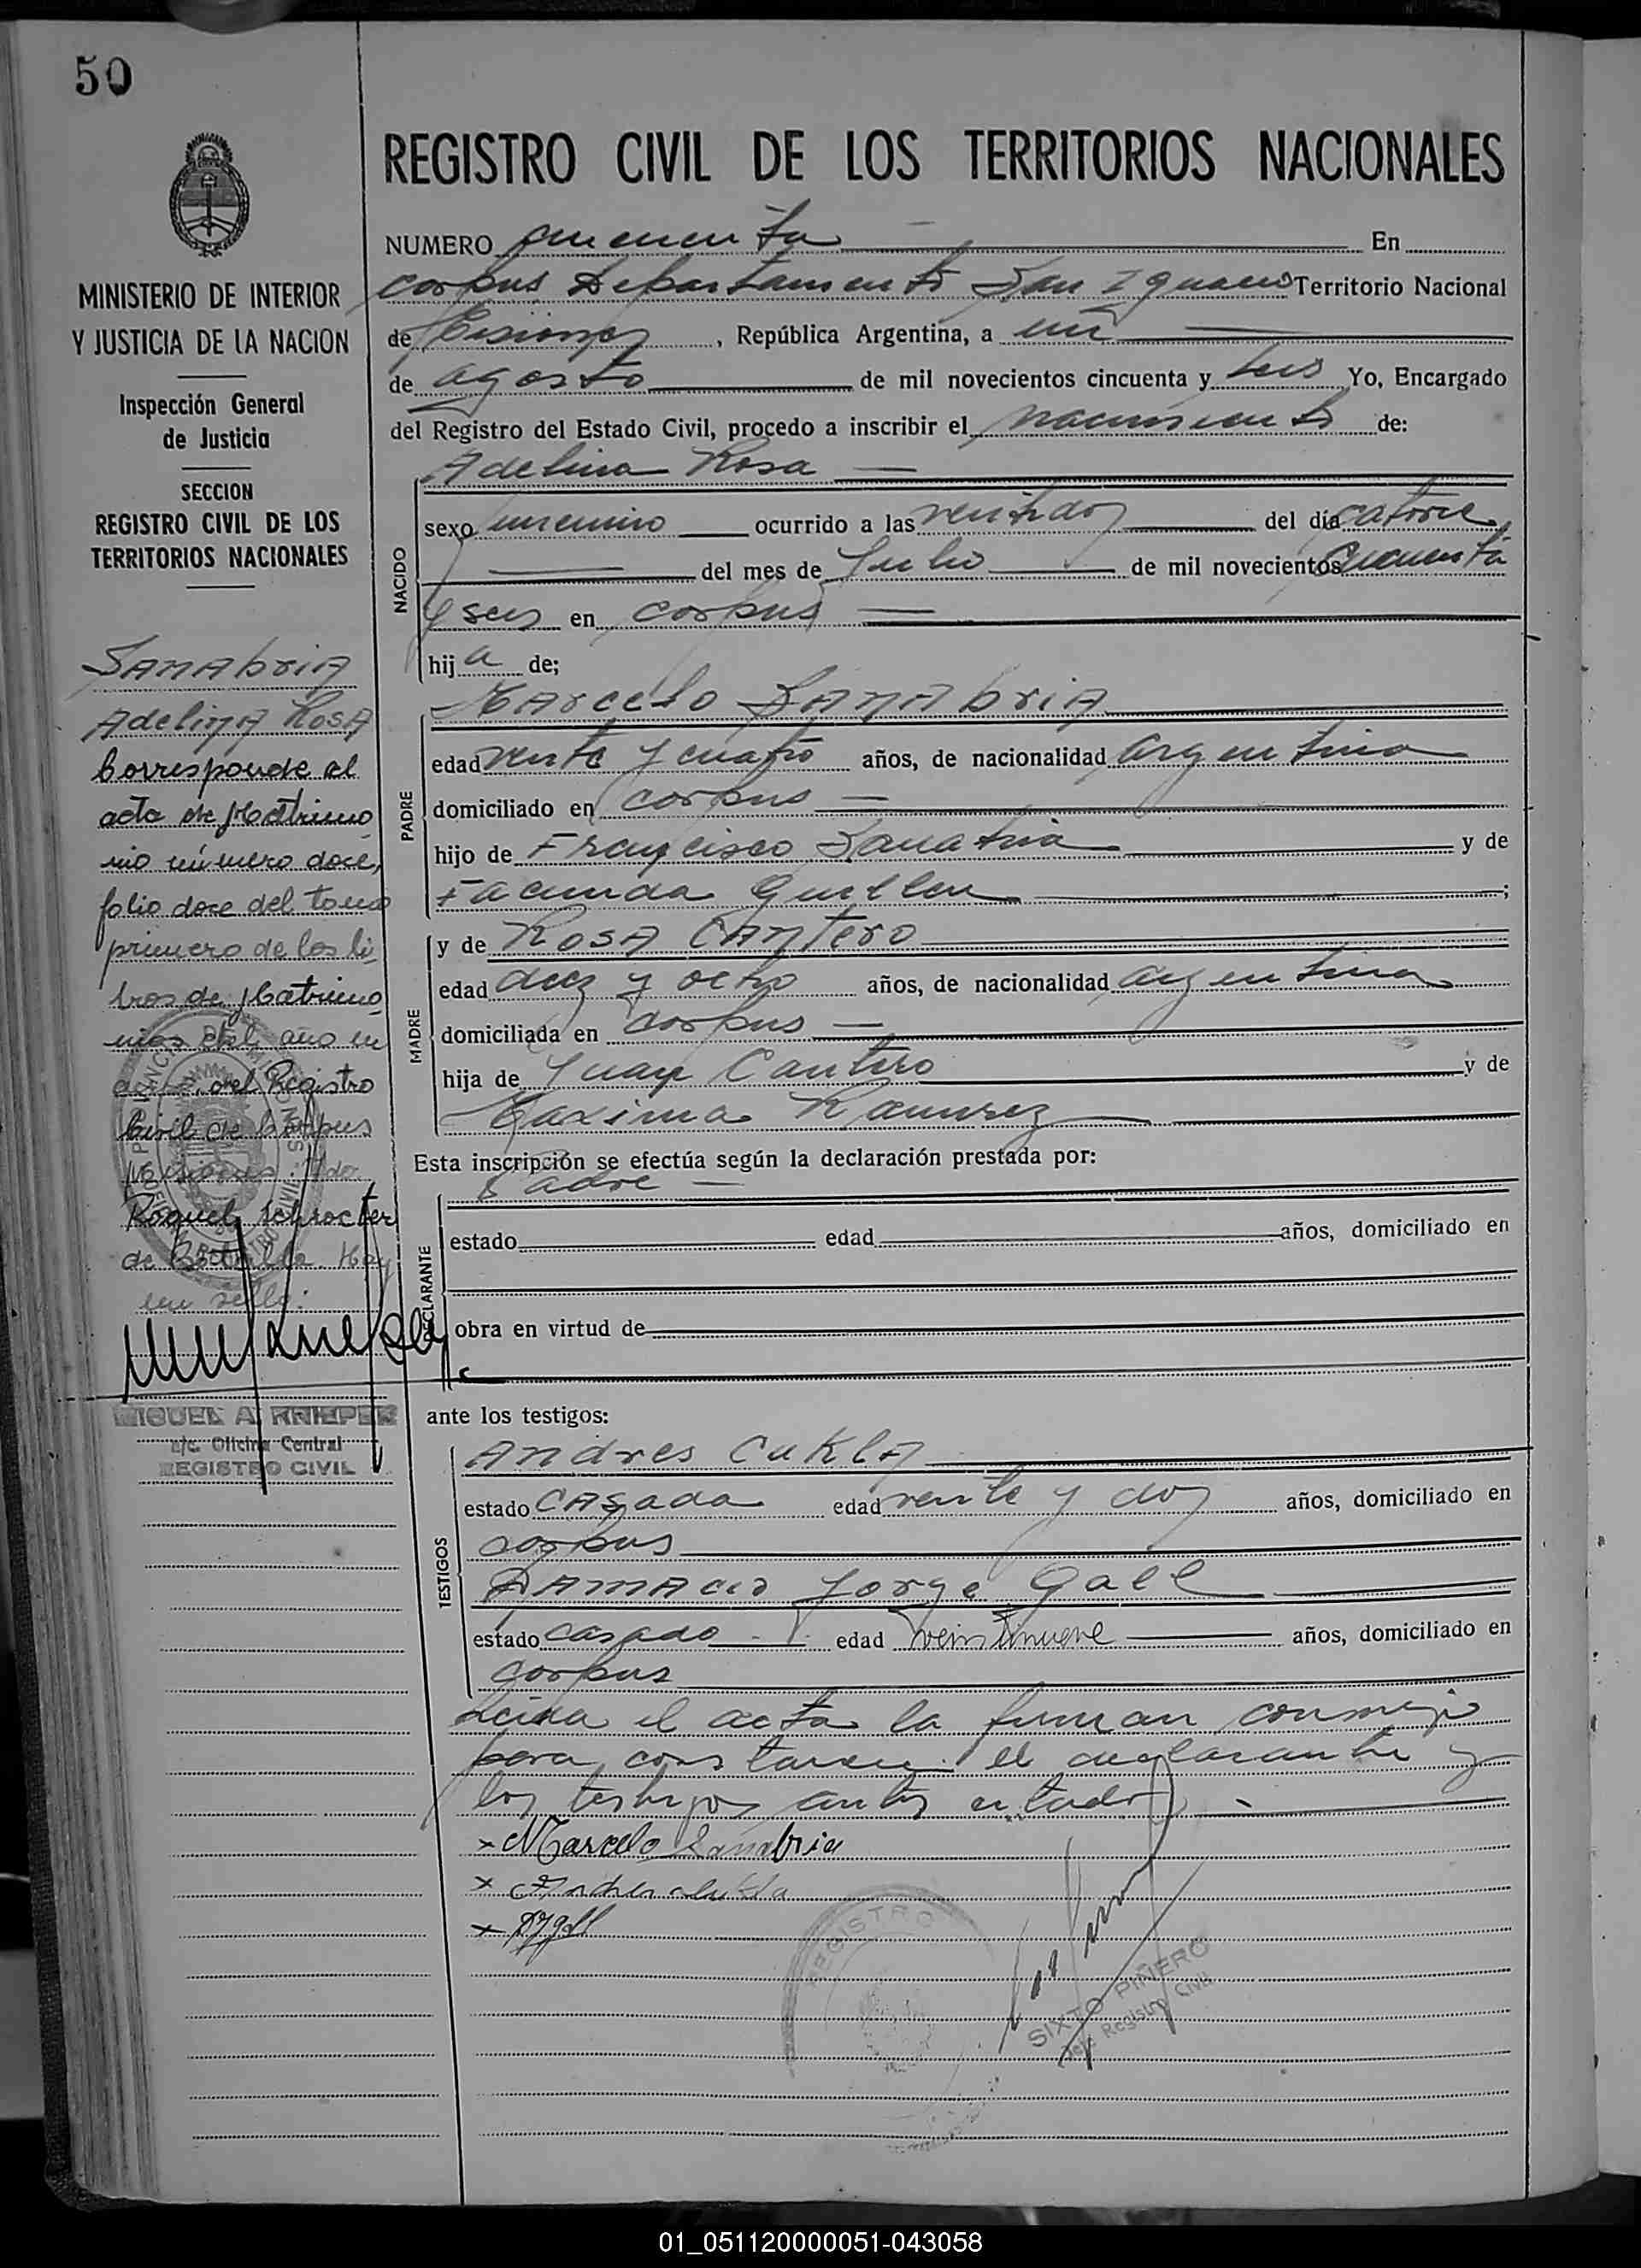 50
REGISTRO CIVIL DE LOS TERRITORIOS NACIONALES
MINISTERIO DE INTERIOR
Y JUSTICIA DE LA NACION
Inspección General
de Justicia
SECCION
REGISTRO CIVIL DE LOS
TERRITORIOS NACIONALES
SANAbriA
AdeliNA RosA
Corresponde al
acta de Matrimo
nio número doce,
folio doce del tomo
primero de los li
bros de Matrimo
nios del año en
del Registro
Civil de Corpus
Misiones. Fdo.
Raquel Schrocter
de Hay
un sello:
MIGUEL A. KRIEPER
a/c. Oficina Central
REGISTRO CIVIL
NUMERO cincuenta En
corpus Departamento San Ignacio Territorio Nacional
de Misiones, República Argentina, a un
de agosto de mil novecientos cincuenta y seis Yo, Encargado
del Registro del Estado Civil, procedo a inscribir el nacimiento de:
NACIDO
Adelina Rosa
sexo ocurrido a las veintidos del día catorce
del mes de Julio de mil novecientos cincuenta
y seis en corpus
hija de;
PADRE
MArcelo SANAbriA
edad veinte y cuatro años, de nacionalidad argentina
domiciliado en corpus
hijo de Francisco Sanabria y de
Facunda Guillen;
MADRE
y de RosA CANtero
edad diez y ocho años, de nacionalidad argentina
domiciliada en corpus
hija de Juan Cantero y de
Maxima Ramirez
Esta inscripción se efectúa según la declaración prestada por:
DECLARANTE
Padre
estado edad años, domiciliado en
obra en virtud de
ante los testigos:
TESTIGOS
ANdres CuKlA
estado CASado edad veinte y dos años, domiciliado en
corpus
DAMAcio Jorge Gall
estado casado edad veintinueve años, domiciliado en
corpus
Leida el acta la firman conmigo
para constancia el declarante y
los testigos antes citados
x Marcelo Sanabria
x Andres Cukla
x DJGall
REGISTRO
SIXTO PIÑERO
Jefe Registro Civil
01_051120000051-043058